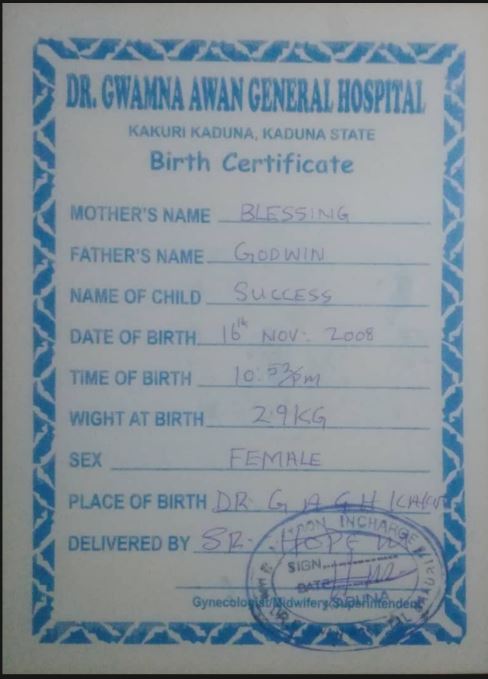 DR. GWAMNA AWAN GENERAL HOSPITAL
KAKURI KADUNA, KADUNA STATE
Birth Certificate
MOTHER'S NAME BLESSING
FATHER'S NAME GODWIN
NAME OF CHILD SUCCESS
DATE OF BIRTH 16th NOV. 2008
TIME OF BIRTH
WIGHT AT BIRTH 2.9KG
SEX FEMALE
PLACE OF BIRTH DR G A G H
DELIVERED BY SR. HOPE
INCHARGE
SIGN
DATE
KADUNA
Gynecologist/Midwifery/Superintendent